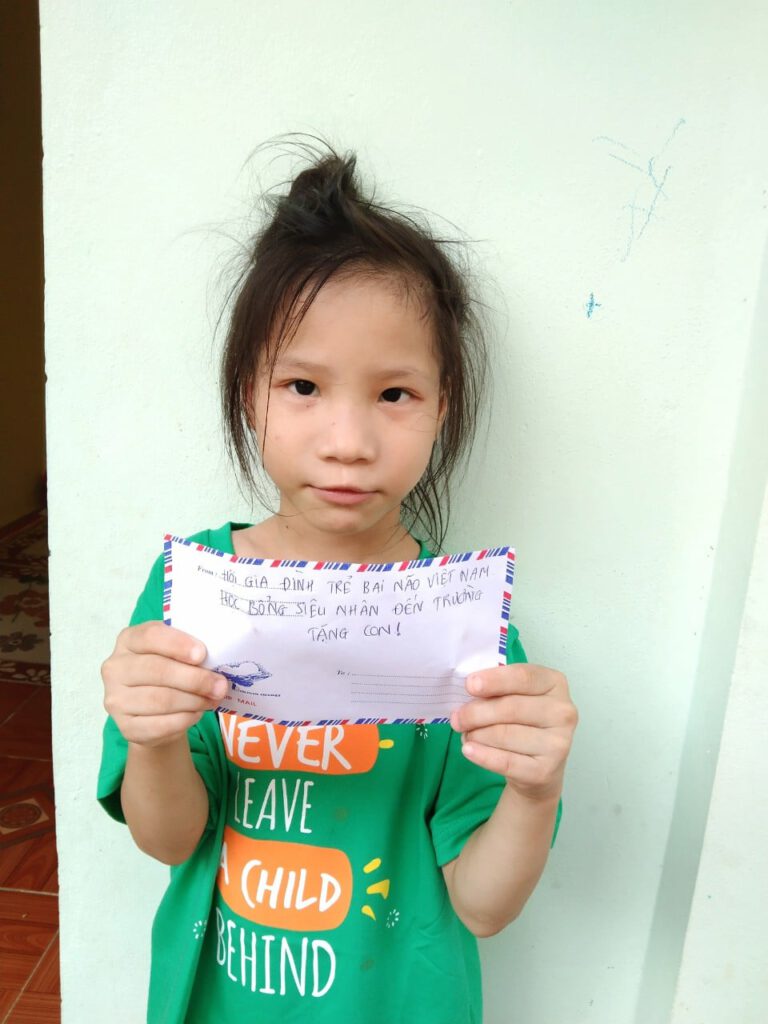 From: HỘI GIA ĐÌNH TRẺ BẠI NÃO VIỆT NAM
HỌC BỔNG SIÊU NHÂN ĐẾN TRƯỜNG
TẶNG CON!
To:
MAIL
NEVER
LEAVE
A CHILD
BEHIND